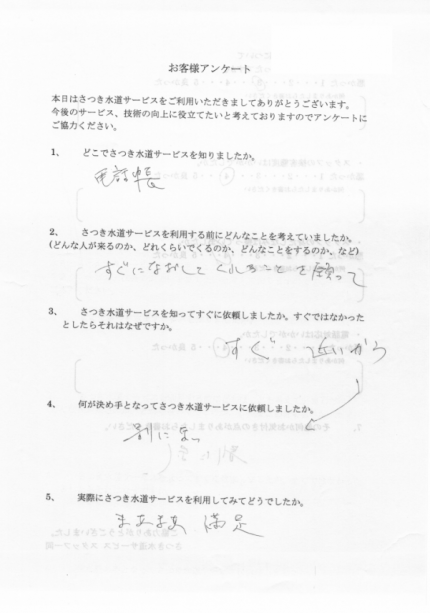 お客様アンケート
本日はさつき水道サービスをご利用いただきましてありがとうございます。
今後のサービス、技術の向上に役立てたいと考えておりますのでアンケートに
ご協力ください。
1、 どこでさつき水道サービスを知りましたか。
電話帳
2、 さつき水道サービスを利用する前にどんなことを考えていましたか。
(どんな人が来るのか、どれくらいでくるのか、どんなことをするのか、など)
すぐになおしてくれることを願って
3、 さつき水道サービスを知ってすぐに依頼しましたか。すぐではなかった
としたらそれはなぜですか。
すぐ 近いから
4、 何が決め手となってさつき水道サービスに依頼しましたか。
別にない
5、 実際にさつき水道サービスを利用してみてどうでしたか。
まあまあ 満足